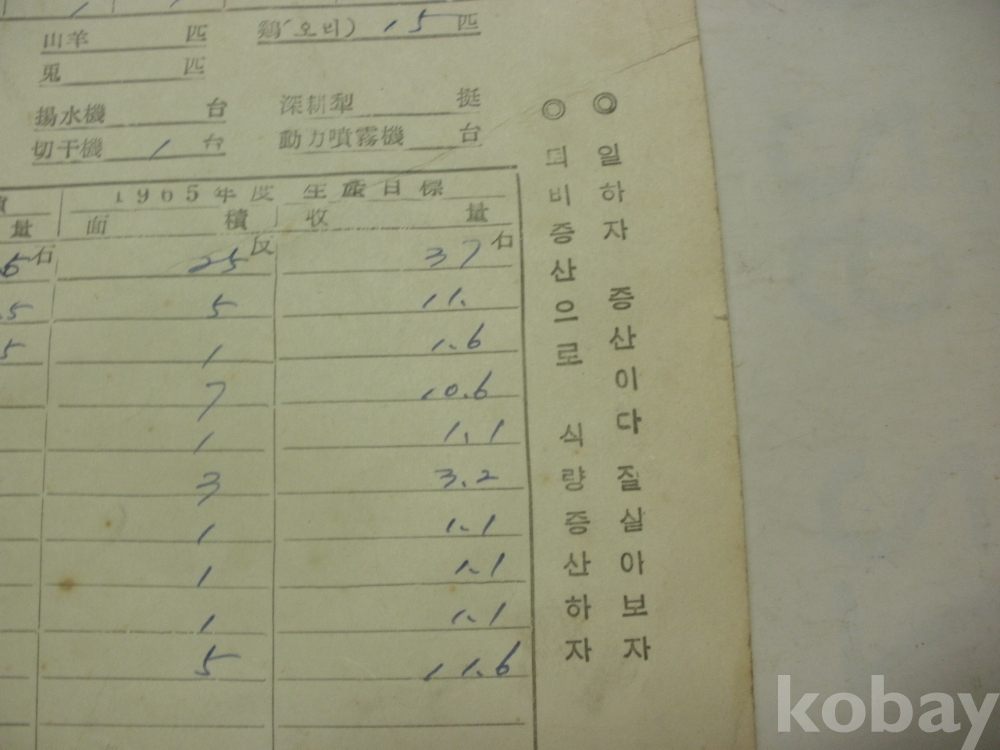 山羊 匹 鷄(오리) 15 匹
兎 匹
揚水機 台 深耕犁 挺
切干機 1 台 動力噴霧機 台
1965年度 生産目標
量 面積 收量
石 25 反 37 石
.5 5 11.
5 1 1.6
7 10.6
1 1.1
3 3.2
1 1.1
1 1.1
1 1.1
5 11.6
◎ 일하자 증산이다 잘살아보자
◎ 퇴비증산으로 식량증산하자
kobay